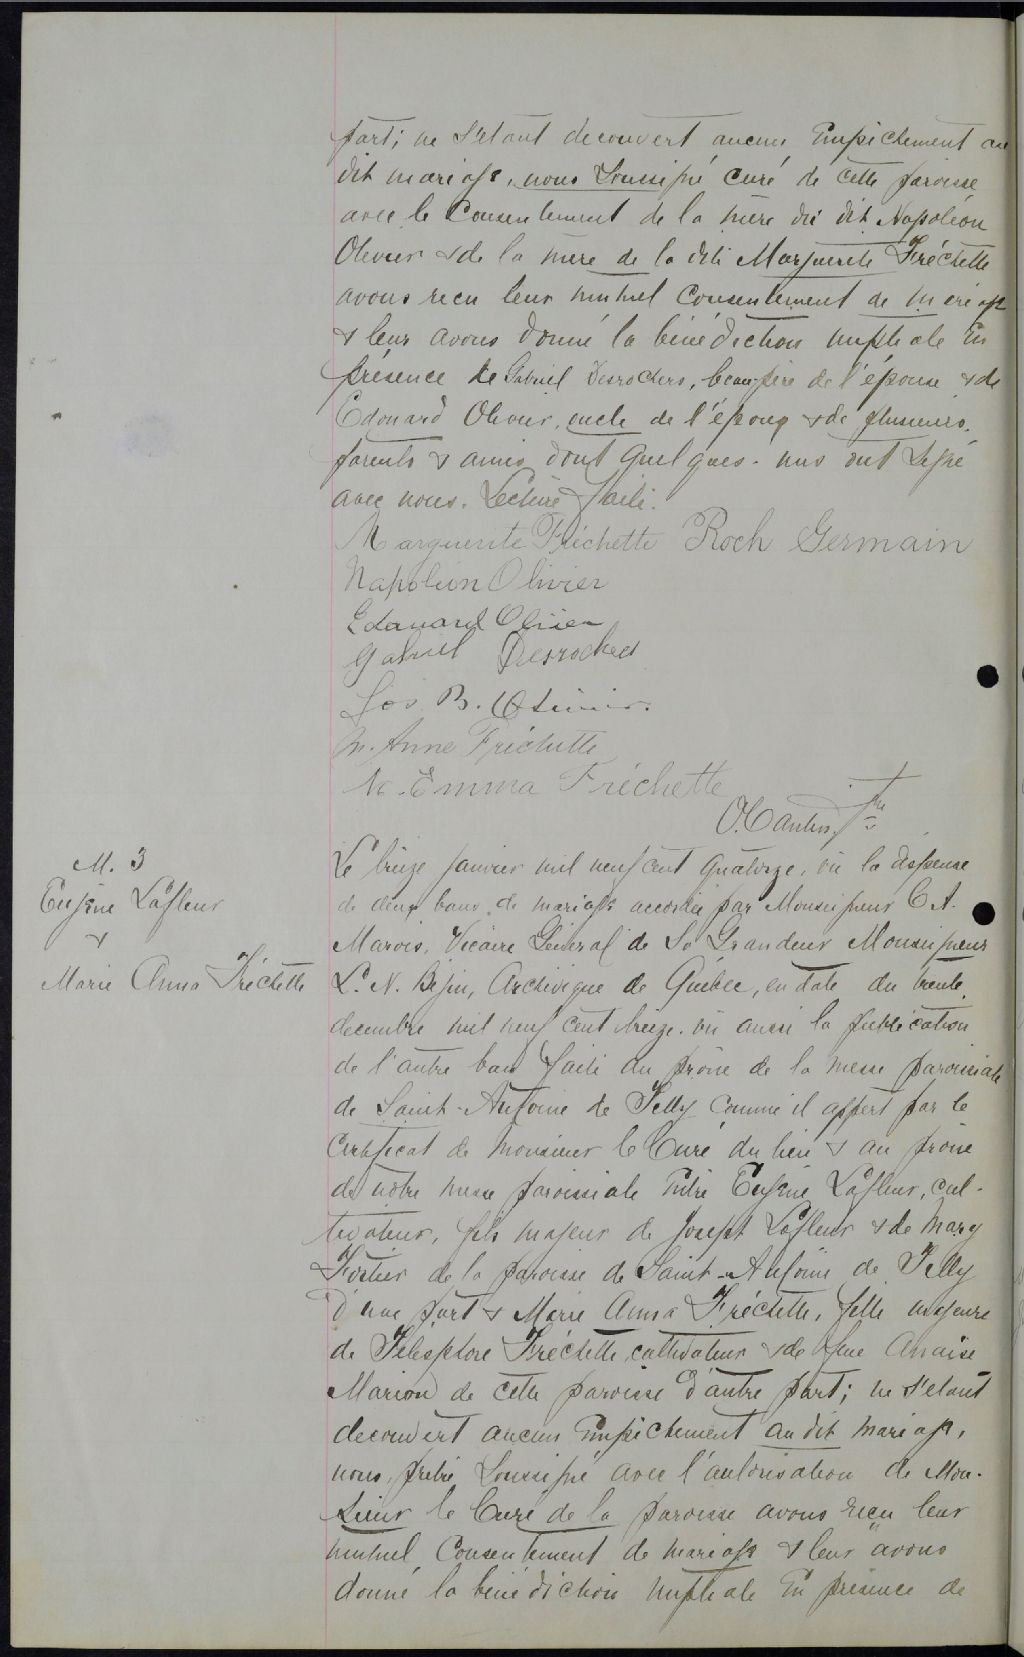 part; ne s'étant decouvert aucun Empêchement au
dit mariage, nous Soussigné curé de cette paroisse
avec le Consentement de la mère du dit Napoléon
Olivier & de la mère de la dite Marguerite Fréchette
avons recu leur mutuel Consentement de mariage
& leur avons donné la bénédiction nuptiale En
présence de Gabriel Desrochers, beau père de l'épouse & de
Edouard Olivier, oncle de l'époux & de plusieurs
parents & amis dont quelques-uns ont signé
avec nous. Lecture faite.
Marguerite Fréchette Roch Germain
Napoléon Olivier
Edouard Olivier
Gabriel Desrochers
Jos B. Olivier.
M. Anne Fréchette
M. Emma Fréchette
Ptre
M. 3
Eugène Lafleur
&
Marie Anna Fréchette
Le treize janvier mil neuf cent quatorze, vu la dispense
de deux bans de mariage accordée par Monseigneur C. A.
Marois, Vicaire Général de Sa Grandeur Monseigneur
L. N. Bégin, Archevêque de Québec, en date du trente
decembre mil neuf cent treize, vu aussi la publication
de l'autre ban faite au prône de la messe paroissiale
de Saint-Antoine de Tilly comme il appert par le
certificat de Monsieur le Curé du lieu & au prône
de notre messe paroissiale Entre Eugène Lafleur, cul-
tivateur, fils majeur de Joseph Lafleur & de Mary
Fortier de la paroisse de Saint-Antoine de Tilly
d'une part & Marie Anna Fréchette, fille majeure
de Télésphore Fréchette cultivateur & de feue Anaïse
Marion de cette paroisse d'autre part; ne s'étant
decouvert aucun Empêchement au dit mariage,
nous, prêtre Soussigné avec l'autorisation de Mon-
sieur le Curé de la paroisse avons reçu leur
mutuel Consentement de mariage & leur avons
donné la bénédiction nuptiale En présence de